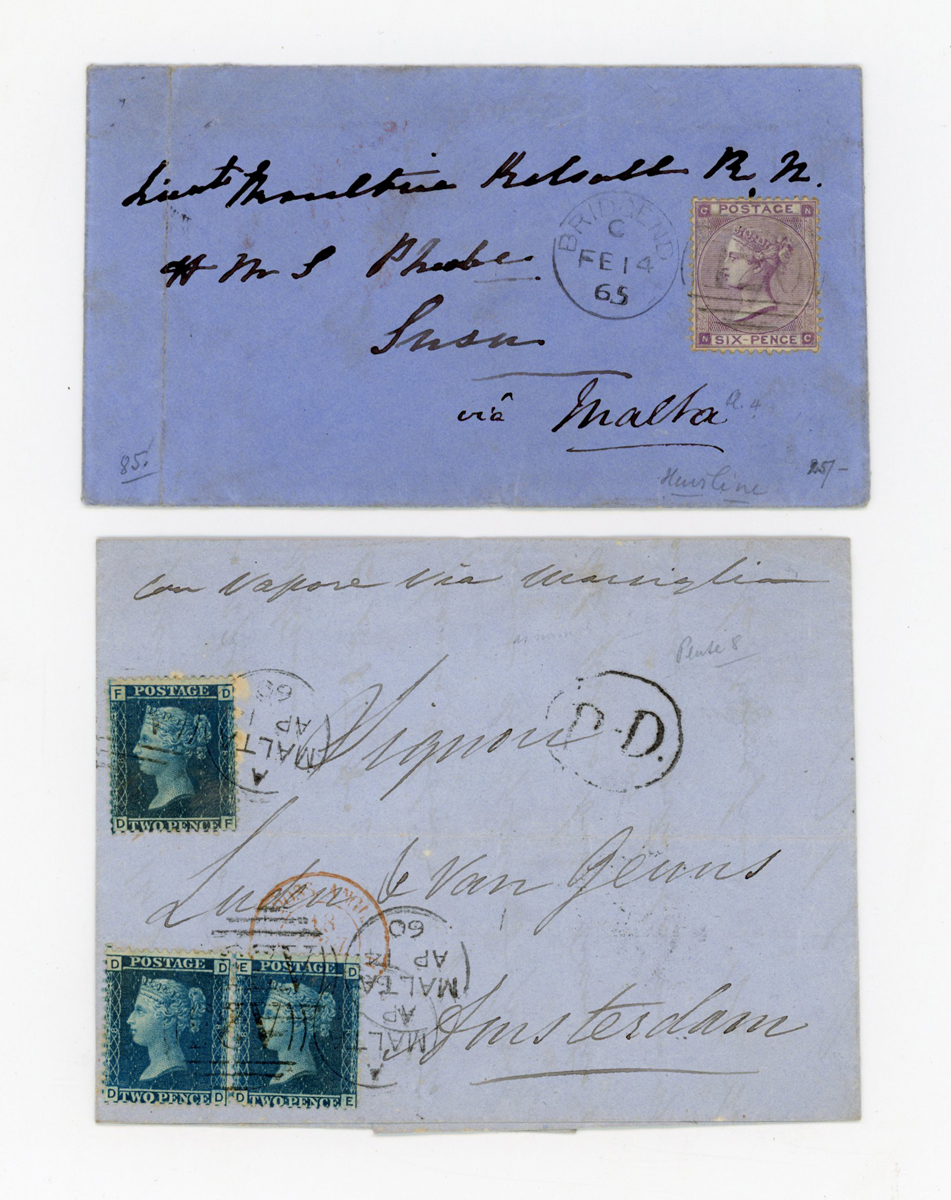 Lieut Moultrie Kelsall R. N.
H M S Phoebe
via Malta
BRIDGEND
C
FE 14
65
G POSTAGE N
N SIX-PENCE C
85.
25/-
Con Vapore Via Marsiglia
Plate 8
P.D.
Signori
Luden & Van Geuns
Amsterdam
F POSTAGE D
D TWO PENCE F
MALTA
A
AP
60
D POSTAGE D
D TWO PENCE D
E POSTAGE D
D TWO PENCE E
MALTA
AP
60
MALTA
A
AP